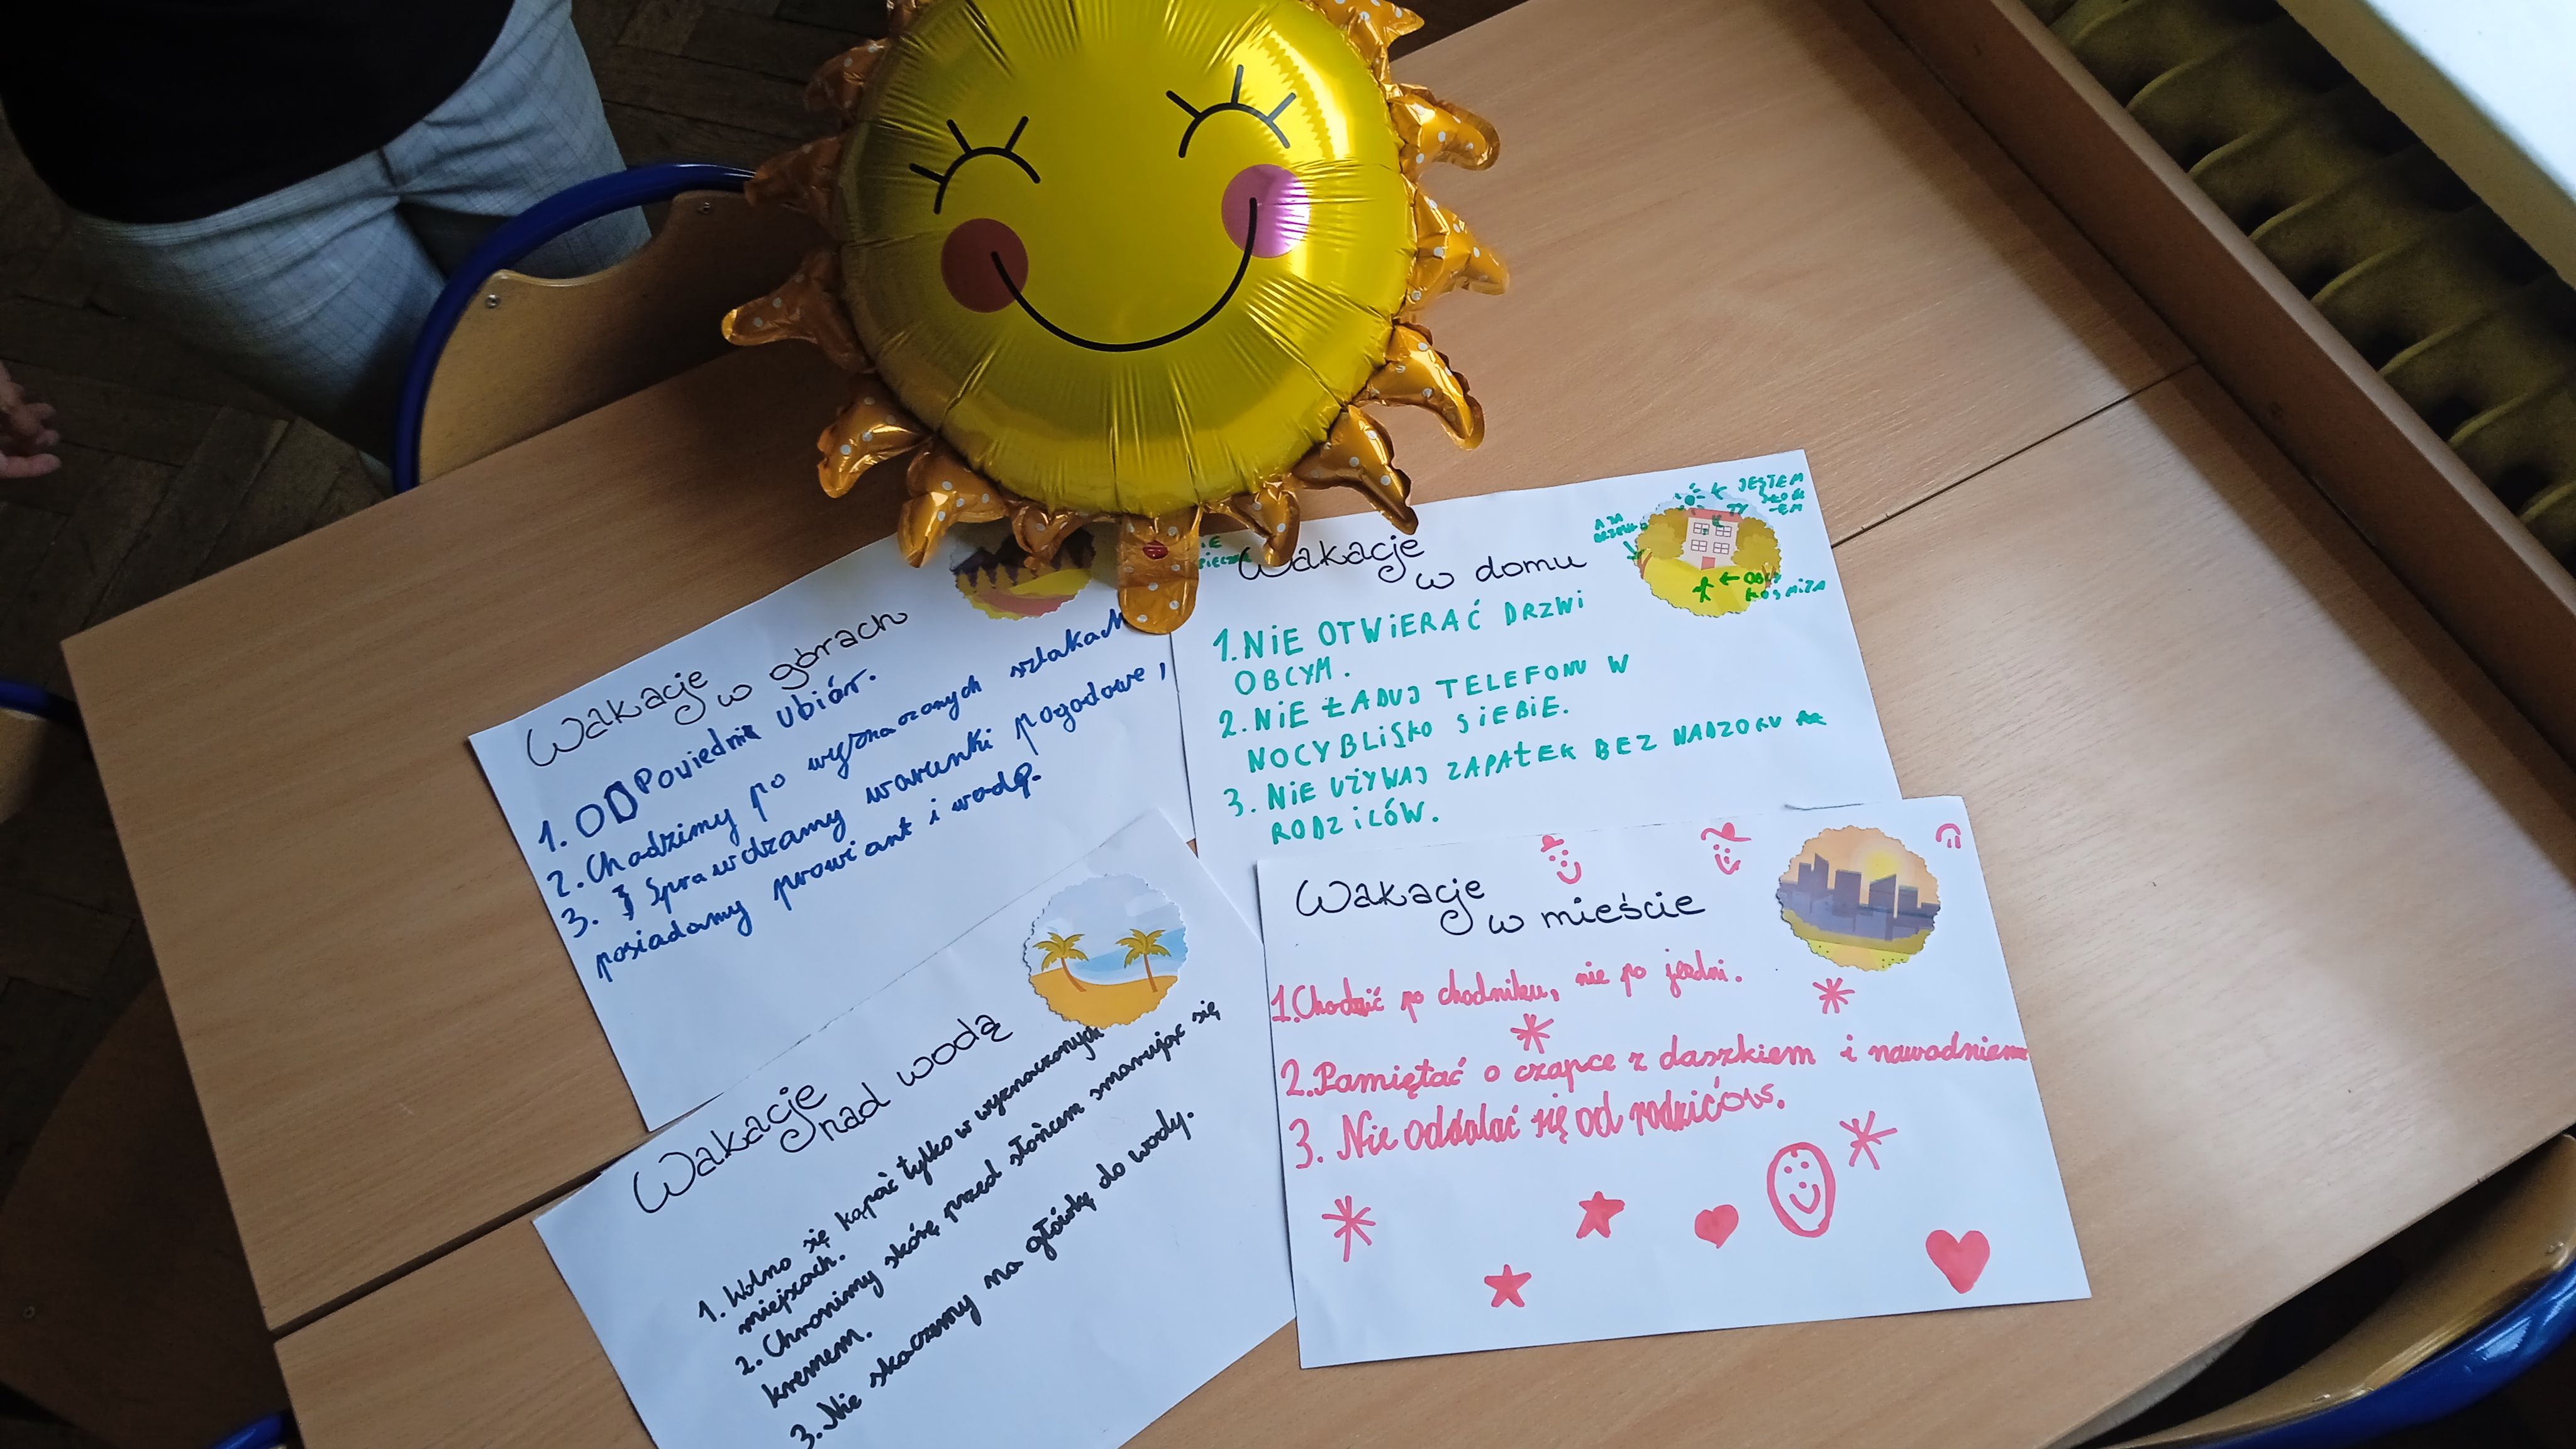 Wakacje
w górach
1. ODPowiednie ubiór.
2. Chodzimy po wyznaczonych szlakach
3. Sprawdzamy warunki pogodowe,
posiadamy prowiant i wodę.
Wakacje
w domu
JESTEM
TY
1. NiE OTWiERAĆ DRZWi
OBCYM.
2. NiE ŁADUJ TELEFONU W
NOCY BLiSkO SiEBiE.
3. NiE UŻYWAJ ZAPAŁEK BEZ NADZORU
RODZiCÓW.
Wakacje
nad wodą
1. Wolno się kąpać tylko w wyznaczonych
miejscach.
2. Chronimy skórę przed słońcem smarując się
kremem.
3. Nie skaczemy na główkę do wody.
Wakacje
w mieście
1. Chodzić po chodniku, nie po jezdni.
2. Pamiętać o czapce z daszkiem i nawodnieniu
3. Nie oddalać się od rodziców.